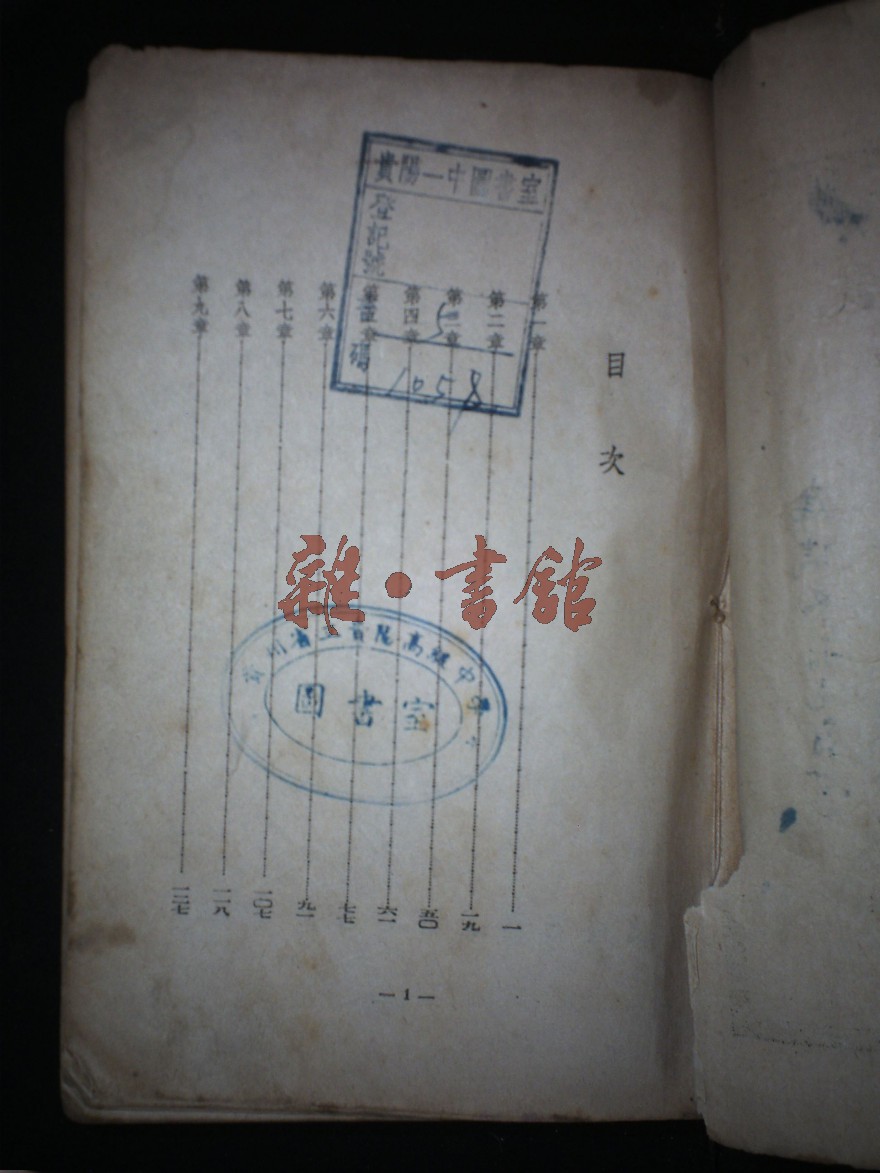 目次
第一章 一
第二章 一九
第三章 五〇
第四章 六一
第五章 七七
第六章 九一
第七章 一〇七
第八章 一一八
第九章
—1—
貴陽一中圖書室
登記號
5
碼
1058
雜·書館
貴州省立貴陽高級中學
圖書室